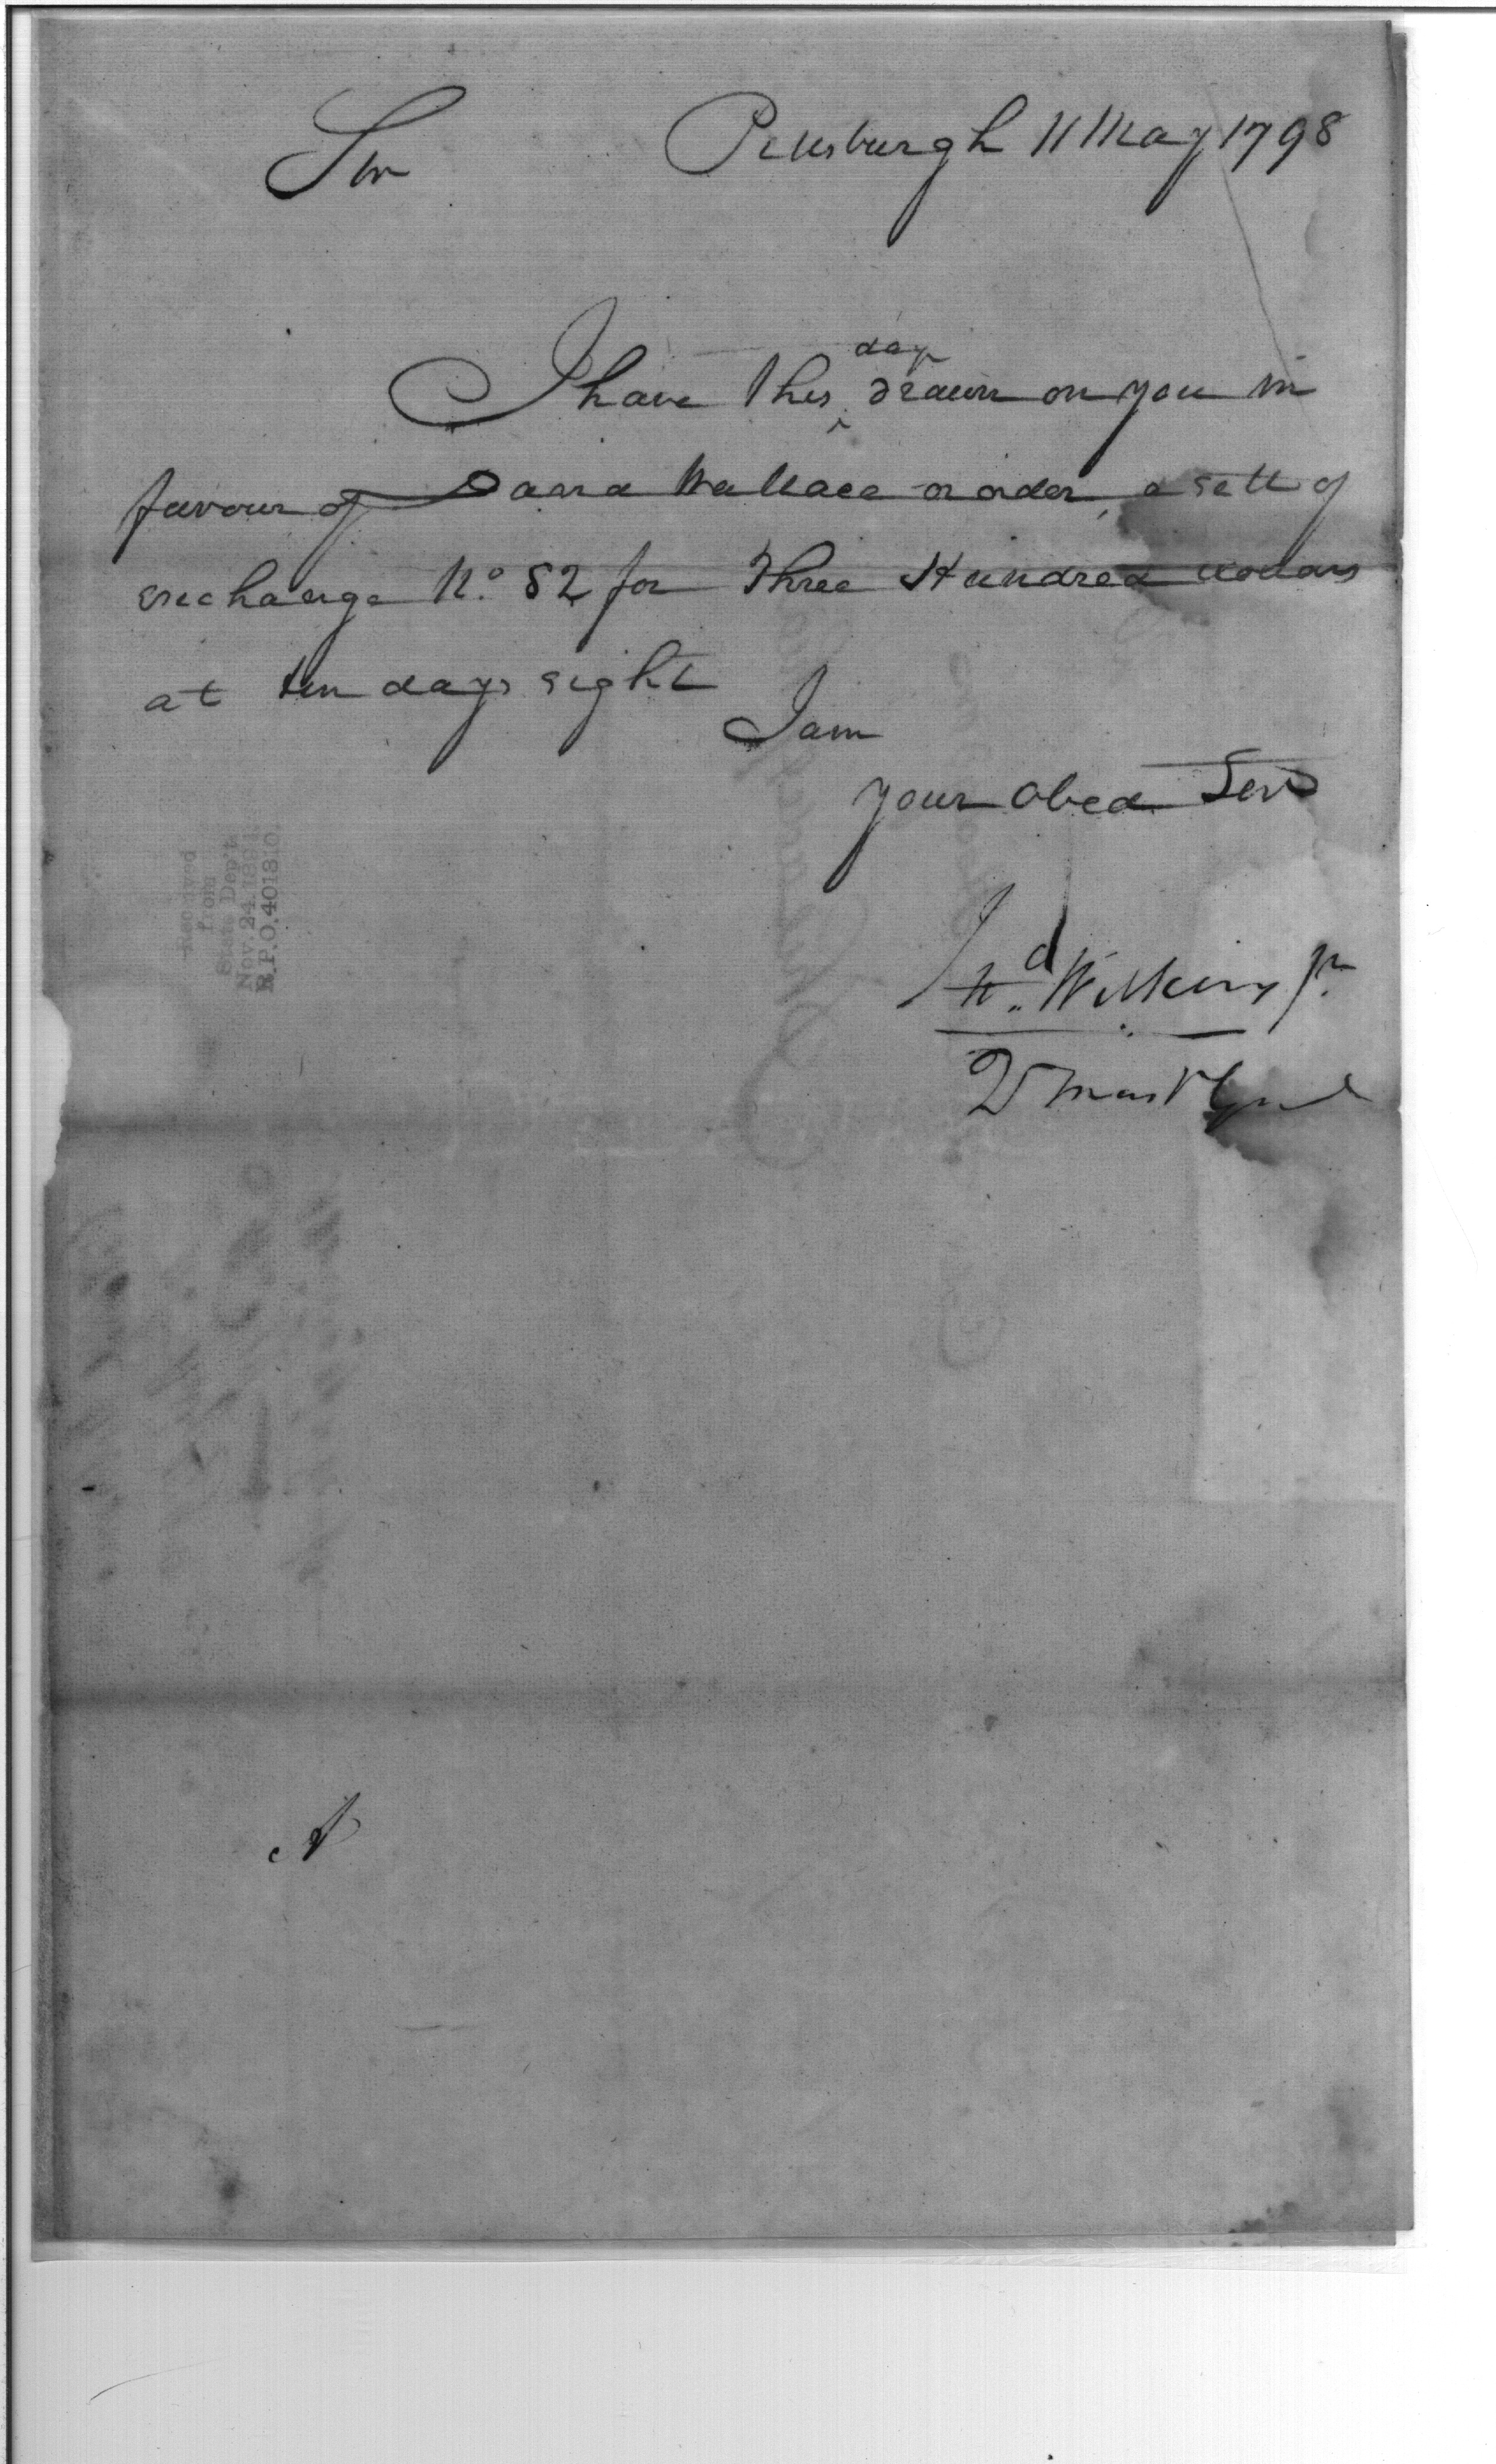 Sir Pittsburgh 11 May 1798
I have this day drawn on you in
favour of David Wallace or order, a sett of
exchange No. 82 for Three Hundred dollars
at ten days sight
I am
your obed Serv
Jn. Wilkins Jr.
Qr Mas Genl
Received
from
State Dep't
Nov. 24. 1801
R.P.O. 401810